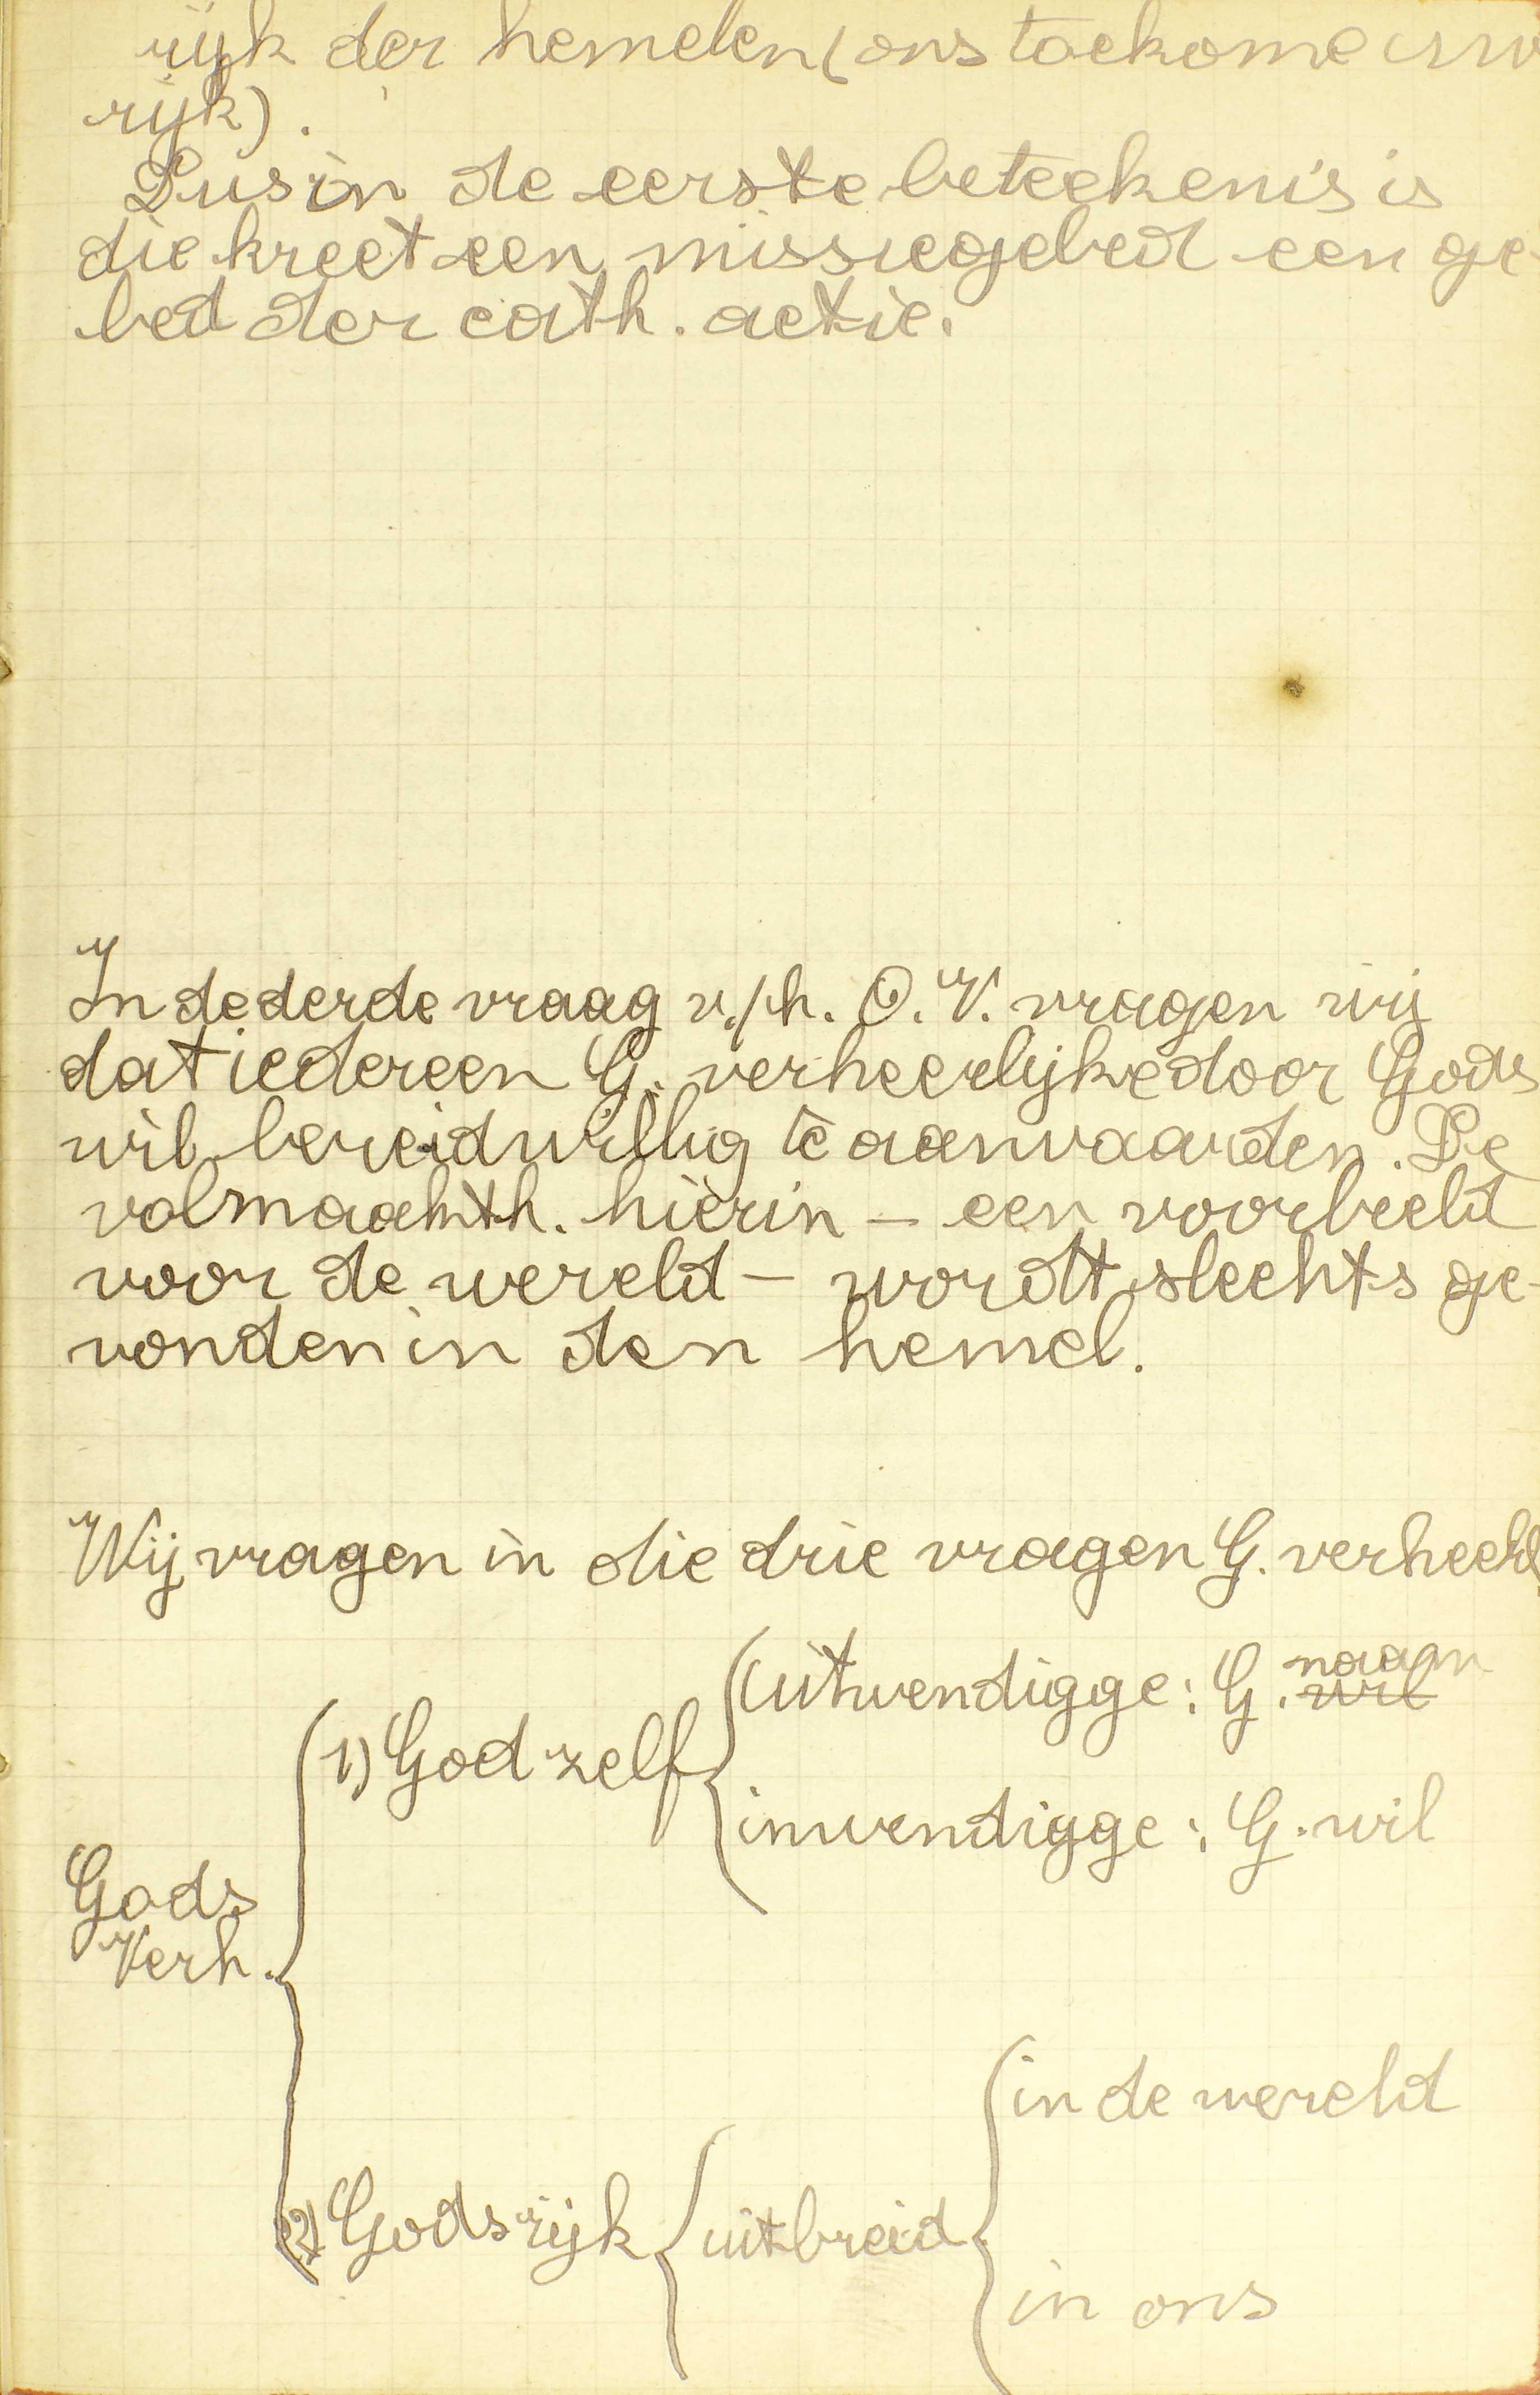 rijk der hemelen (ons toekome uw
rijk).
Dus in de eerste beteekenis is
die kreet een missiegebed een ge-
bed der cath. actie.
In de derde vraag v./h. O. V. vragen wij
dat iedereen G. verheerlijke door Gods
wil bereidwillig te aanvaarden. De
volmaakth. hierin – een voorbeeld
voor de wereld – wordt slechts ge-
vonden in den hemel.
Wij vragen in die drie vragen G. verheerl
uitwendigge: G. naam
wil
1) God zelf
inwendigge: G. wil
Gods
Verh.
in de wereld
2) Gods rijk uitbreid.
in ons